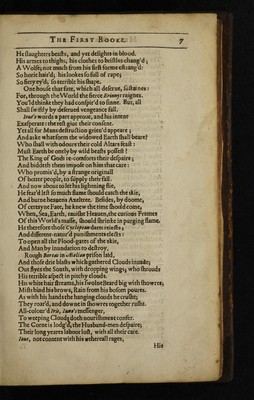 THE FIRST BOOKE. 7
He slaughters beasts, and yet delights in bloud.
His armes to thighs, his clothes to bristles chang'd;
A Wolfe, not much from his first forme estrang'd:
So horie hair'd; his lookes so full of rape;
So fiery ey'd, so terrible his shape.
One house that fate, which all deserue, sustaines:
For, through the World the fierce Erinnys raignes.
You'ld thinke they had conspir'd to sinne. But, all
Shall swiftly by deserued vengeance fall.
Ioue's words a part approue, and his intent
Exasperate: the rest giue their consent.
Yet all for Mans destruction grieu'd appeare;
And aske what forme the widowed Earth shall beare?
Who shall with odours their cold Altars feast?
Must Earth be onely by wild beasts possest?
The King of Gods re-comforts their despaire;
And biddeth them impose on him that care:
Who promis'd, by a strange originall
Of better people, to supply their fall.
And now about to let his lightning flie,
He fear'd lest so much flame should catch the skie,
And burne heauens Axeltree. Besides, by doome,
Of certayne Fate, he knew the time should come,
When, Sea, Earth, rauisht Heauen, the curious Frame
Of this World's masse, should shrinke in purging flame.
He therefore those Cyclopean darts reiects;
And different-natur'd punishments elects:
To open all the Flood-gates of the skie,
And Man by inundation to destroy.
Rough Boreas in Æolian prison laid,
And those drie blasts which gathered Clouds inuade;
Out flyes the South, with dropping wings; who shrouds
His terrible aspect in pitchy clouds.
His white haire streams, his swolne Beard big with showres;
Mists bind his brows, Rain from his bosom poures.
As with his hands the hanging clouds he crusht;
They roar'd, and downe in showres together rusht.
All-colour'd Iris, Iuno's messenger,
To weeping Clouds doth nourishment confer.
The Corne is lodg'd, the Husband-men despaire;
Their long yeares labour lost, with all their care.
Ioue, not content with his æthereall rages,
His